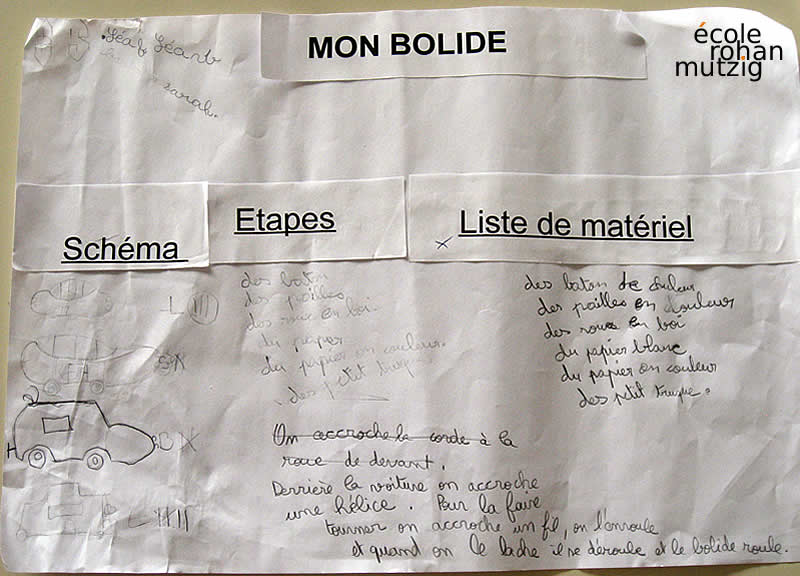 école
rohan
mutzig
MON BOLIDE
Léa
sarah.
Schéma
Etapes
Liste de matériel
des baton
des pailles
des roue en boi.
du papier
du papier en couleur.
des petit truque.
des baton de couleur
des pailles en douleur
des roues en boi
du papier blanc
du papier en couleur
des petit truque.
On accroche la corde à la
roue de devant.
Derrière la voiture on accroche
une hélice. Pour la faire
tourner on accroche un fil, on l'enroule
et quand on le lache il se déroule et le bolide roule.